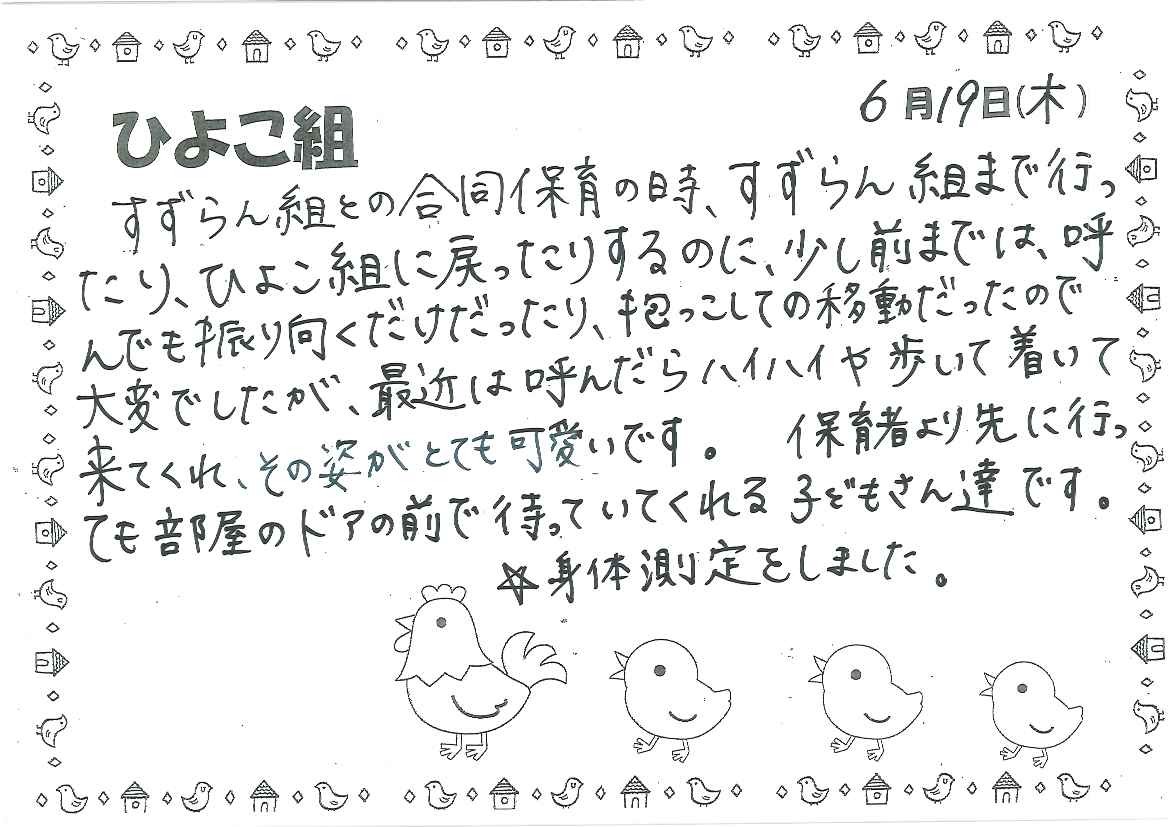 6月19日(木)
ひよこ組
すずらん組との合同保育の時、すずらん組まで行っ
たり、ひよこ組に戻ったりするのに、少し前までは、呼
んでも振り向くだけだったり、抱っこしての移動だったので
大変でしたが、最近は呼んだらハイハイや歩いて着いて
来てくれ、その姿がとても可愛いです。 保育者より先に行っ
ても部屋のドアの前で待っていてくれる子どもさん達です。
☆身体測定をしました。